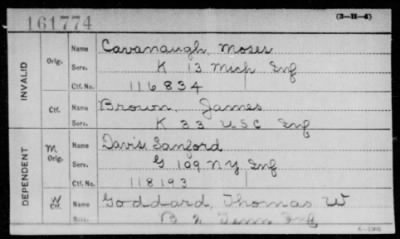 161774
(3-H-4)
INVALID
Orig. Name Cavanaugh, Moses
Serv. K 13 Mich Inf
Ctf. No. 116834
Ctf. Name Brown, James
Serv. K 33 USC Inf
DEPENDENT
M. Orig. Name Davis, Sanford
Serv. G 109 NY Inf
Ctf. No. 118193
W Ctf. Name Goddard, Thomas W
Serv. B 2 Tenn Inf